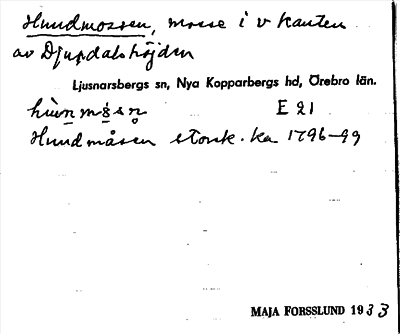 Hundmossen, mosse i v kanten
av Djupdalshöjden
Ljusnarsbergs sn, Nya Kopparbergs hd, Örebro län.
E 21
Hundmåsen storsk. ka 1796–99
MAJA FORSSLUND 1933